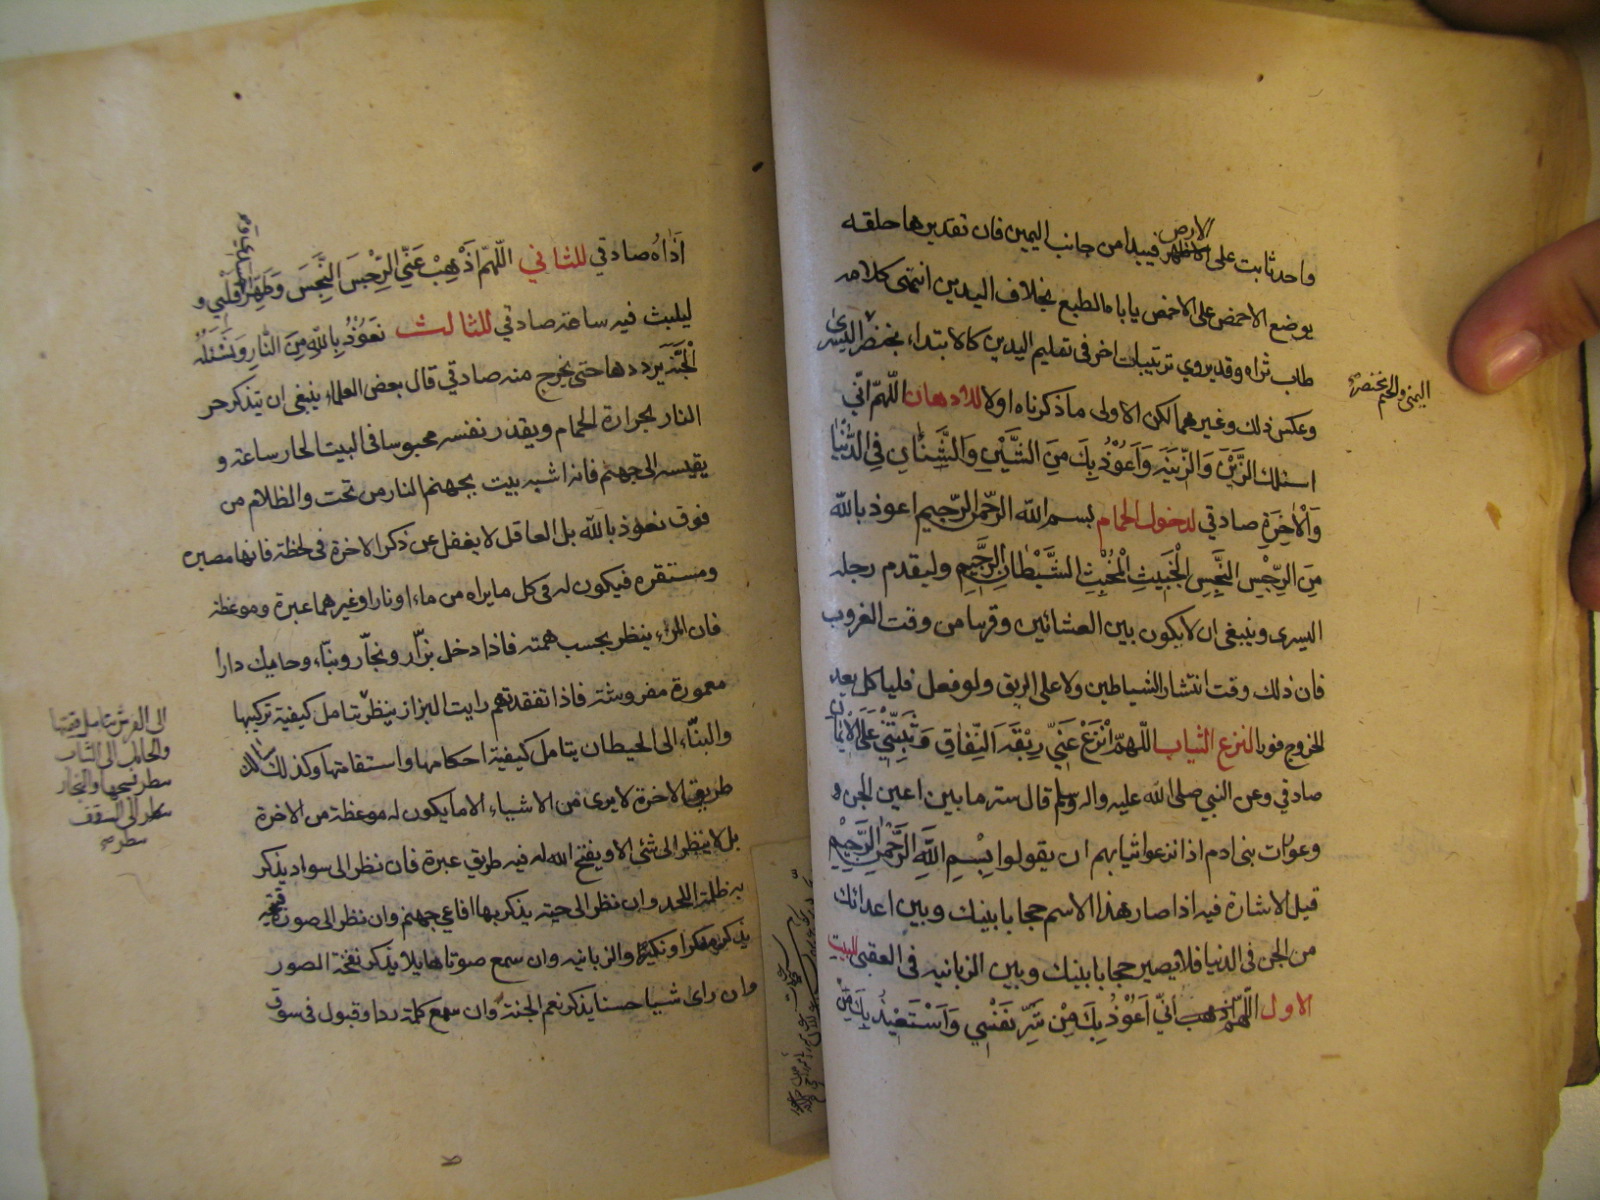 واحد ثابت على الاظهر فيبدا من جانب اليمين فان تقديرها حلقه
الارض
يوضع الاخمص على الاخمص يا باه الطبع بخلاف اليدين انتهى كلامه
طاب ثراه وقد يروي ترتيبات اخر في تقليم اليدين كالابتداء بخنصر اليسرى
اليمنى والختم بخنصر
وعكس ذلك وغيرهما لكن الاولى ما ذكرناه اولا للادهان اللّهمّ انّي
اسئلك الزَّيْنَ وَالزّينَةَ وَاَعُوْذُ بِكَ مِنَ الشَّيْنِ وَالشَّنَاٰنِ فِي الدُّنْيَا
وَالْاٰخِرَةِ صادقي لدخول الحمام بسم الله الرّحمن الرّحيم اعوذ بالله
مِنَ الرِّجْسِ النَّجِسِ الْخَبِيثِ الْمُخْبِثِ الشَّيْطَانِ الرَّجِيْمِ وليقدم رجله
اليسرى وينبغي ان لا يكون بين العشائين وقربها من وقت الغروب
فان ذلك وقت انتشار الشياطين ولا على الريق ولو فعل فلياكل بعد
الخروج فورا لنزع الثياب اللّهمّ انْزَعْ عَنّي رِبْقَةَ النّفَاقِ وَثَبِّتْنِي عَلَى الْاِيْمَانِ
صادقي وعن النبي صلى الله عليه واله وسلم قال ستر ما بين اعين الجن و
وعورات بني ادم اذا نزعوا ثيابهم ان يقولوا بِسْمِ اللهِ الرَّحْمٰنِ الرَّحِيْمِ
قيل الاشارة فيه اذا صار هذا الاسم حجابا بينك وبين اعدائك
من الجن في الدنيا فلا يصير حجابا بينك وبين الزبانيه في العقبى للبيت
الاول اللّهمّ اِنّي اَعُوْذُ بِكَ مِنْ شَرِّ نَفْسِي وَاَسْتَعِيْذُ بِكَ مِنْ
اَذَاهُ صادقي للثاني اللّهمّ اذْهِبْ عَنِّي الرِّجْسَ النَّجِسَ وَطَهِّرْ قَلْبِي و
ليلبث فيه ساعة صادقي للثالث نَعُوْذُ بِاللهِ مِنَ النَّارِ وَنَسْئَلُهُ
الْجَنَّةَ يرددها حتى يخرج منه صادقي قال بعض العلماء ينبغي ان يتذكر حر
النار بحرارة الحمام ويقدر نفسه محبوسا في البيت الحار ساعة و
يقيسه الى جهنم فانه اشبه بيت بجهنم النار من تحت والظلام من
فوق نعوذ بالله بل العاقل لا يغفل عن ذكر الاخرة في لحظة فانها مصيره
ومستقره فيكون له في كل ما يراه من ماء او نار او غيرهما عبرة وموعظة
فان المرء ينظر بحسب همته فاذا دخل بزّاز ونجّار وبنّاء وحايك دارا
معمورة مفروشة فاذا تفقدتهم رايت البزاز ينظر يتامل كيفية تركيبها
الى الفرش يتامل قيمتها
والحايك الى الثياب
ينظر نسجها والنجار
ينظر الى السقف
والبنّاء الى الحيطان يتامل كيفية احكامها واستقامتها وكذلك سالك
طريق الاخرة لا يرى من الاشياء الا ما يكون له موعظة من الاخرة
بل لا ينظر الى شئ الا ويفتح الله له فيه طريق عبرة فان نظر الى سواد يذكر
به ظلمة اللحد وان نظر الى حية يذكر بها افاعي جهنم وان نظر الى صورة قبيحة
يذكر منكرا ونكيرا والزبانيه وان سمع صوتا هايلا يذكر نفخة الصور
وان راى شيا حسنا يذكر نعم الجنة وان سمع كلمة رد او قبول في سوق